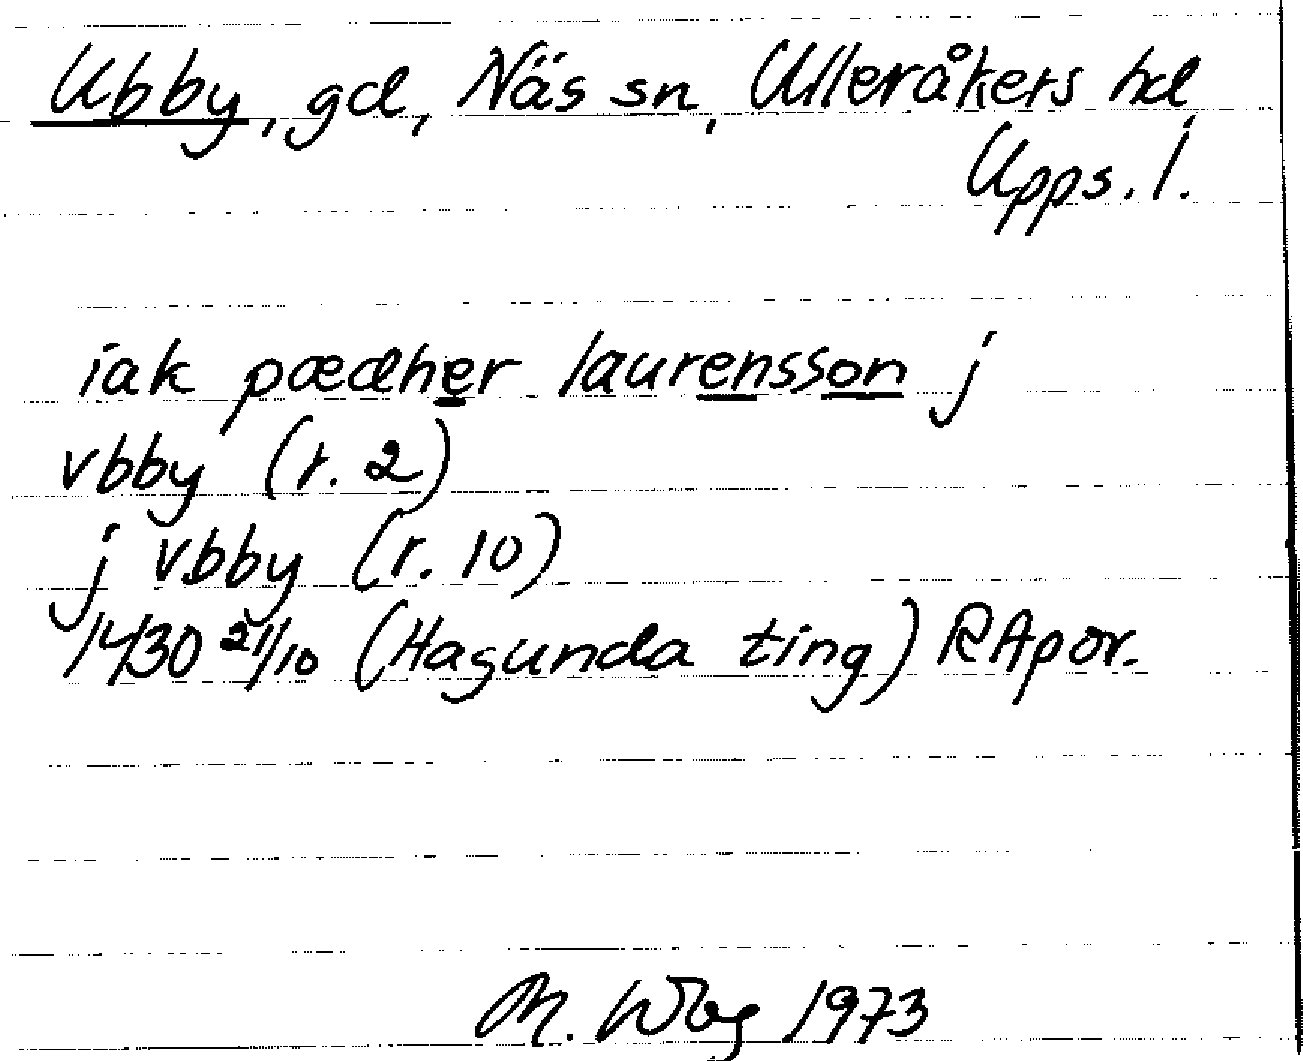 Ubby, gd, Näs sn, Ulleråkers hd
Upps. l.
iak pædher laurensson j
vbby (r. 2)
j vbby (r. 10)
1430 21/10 (Hagunda ting) RApor.
M. Wbg 1973